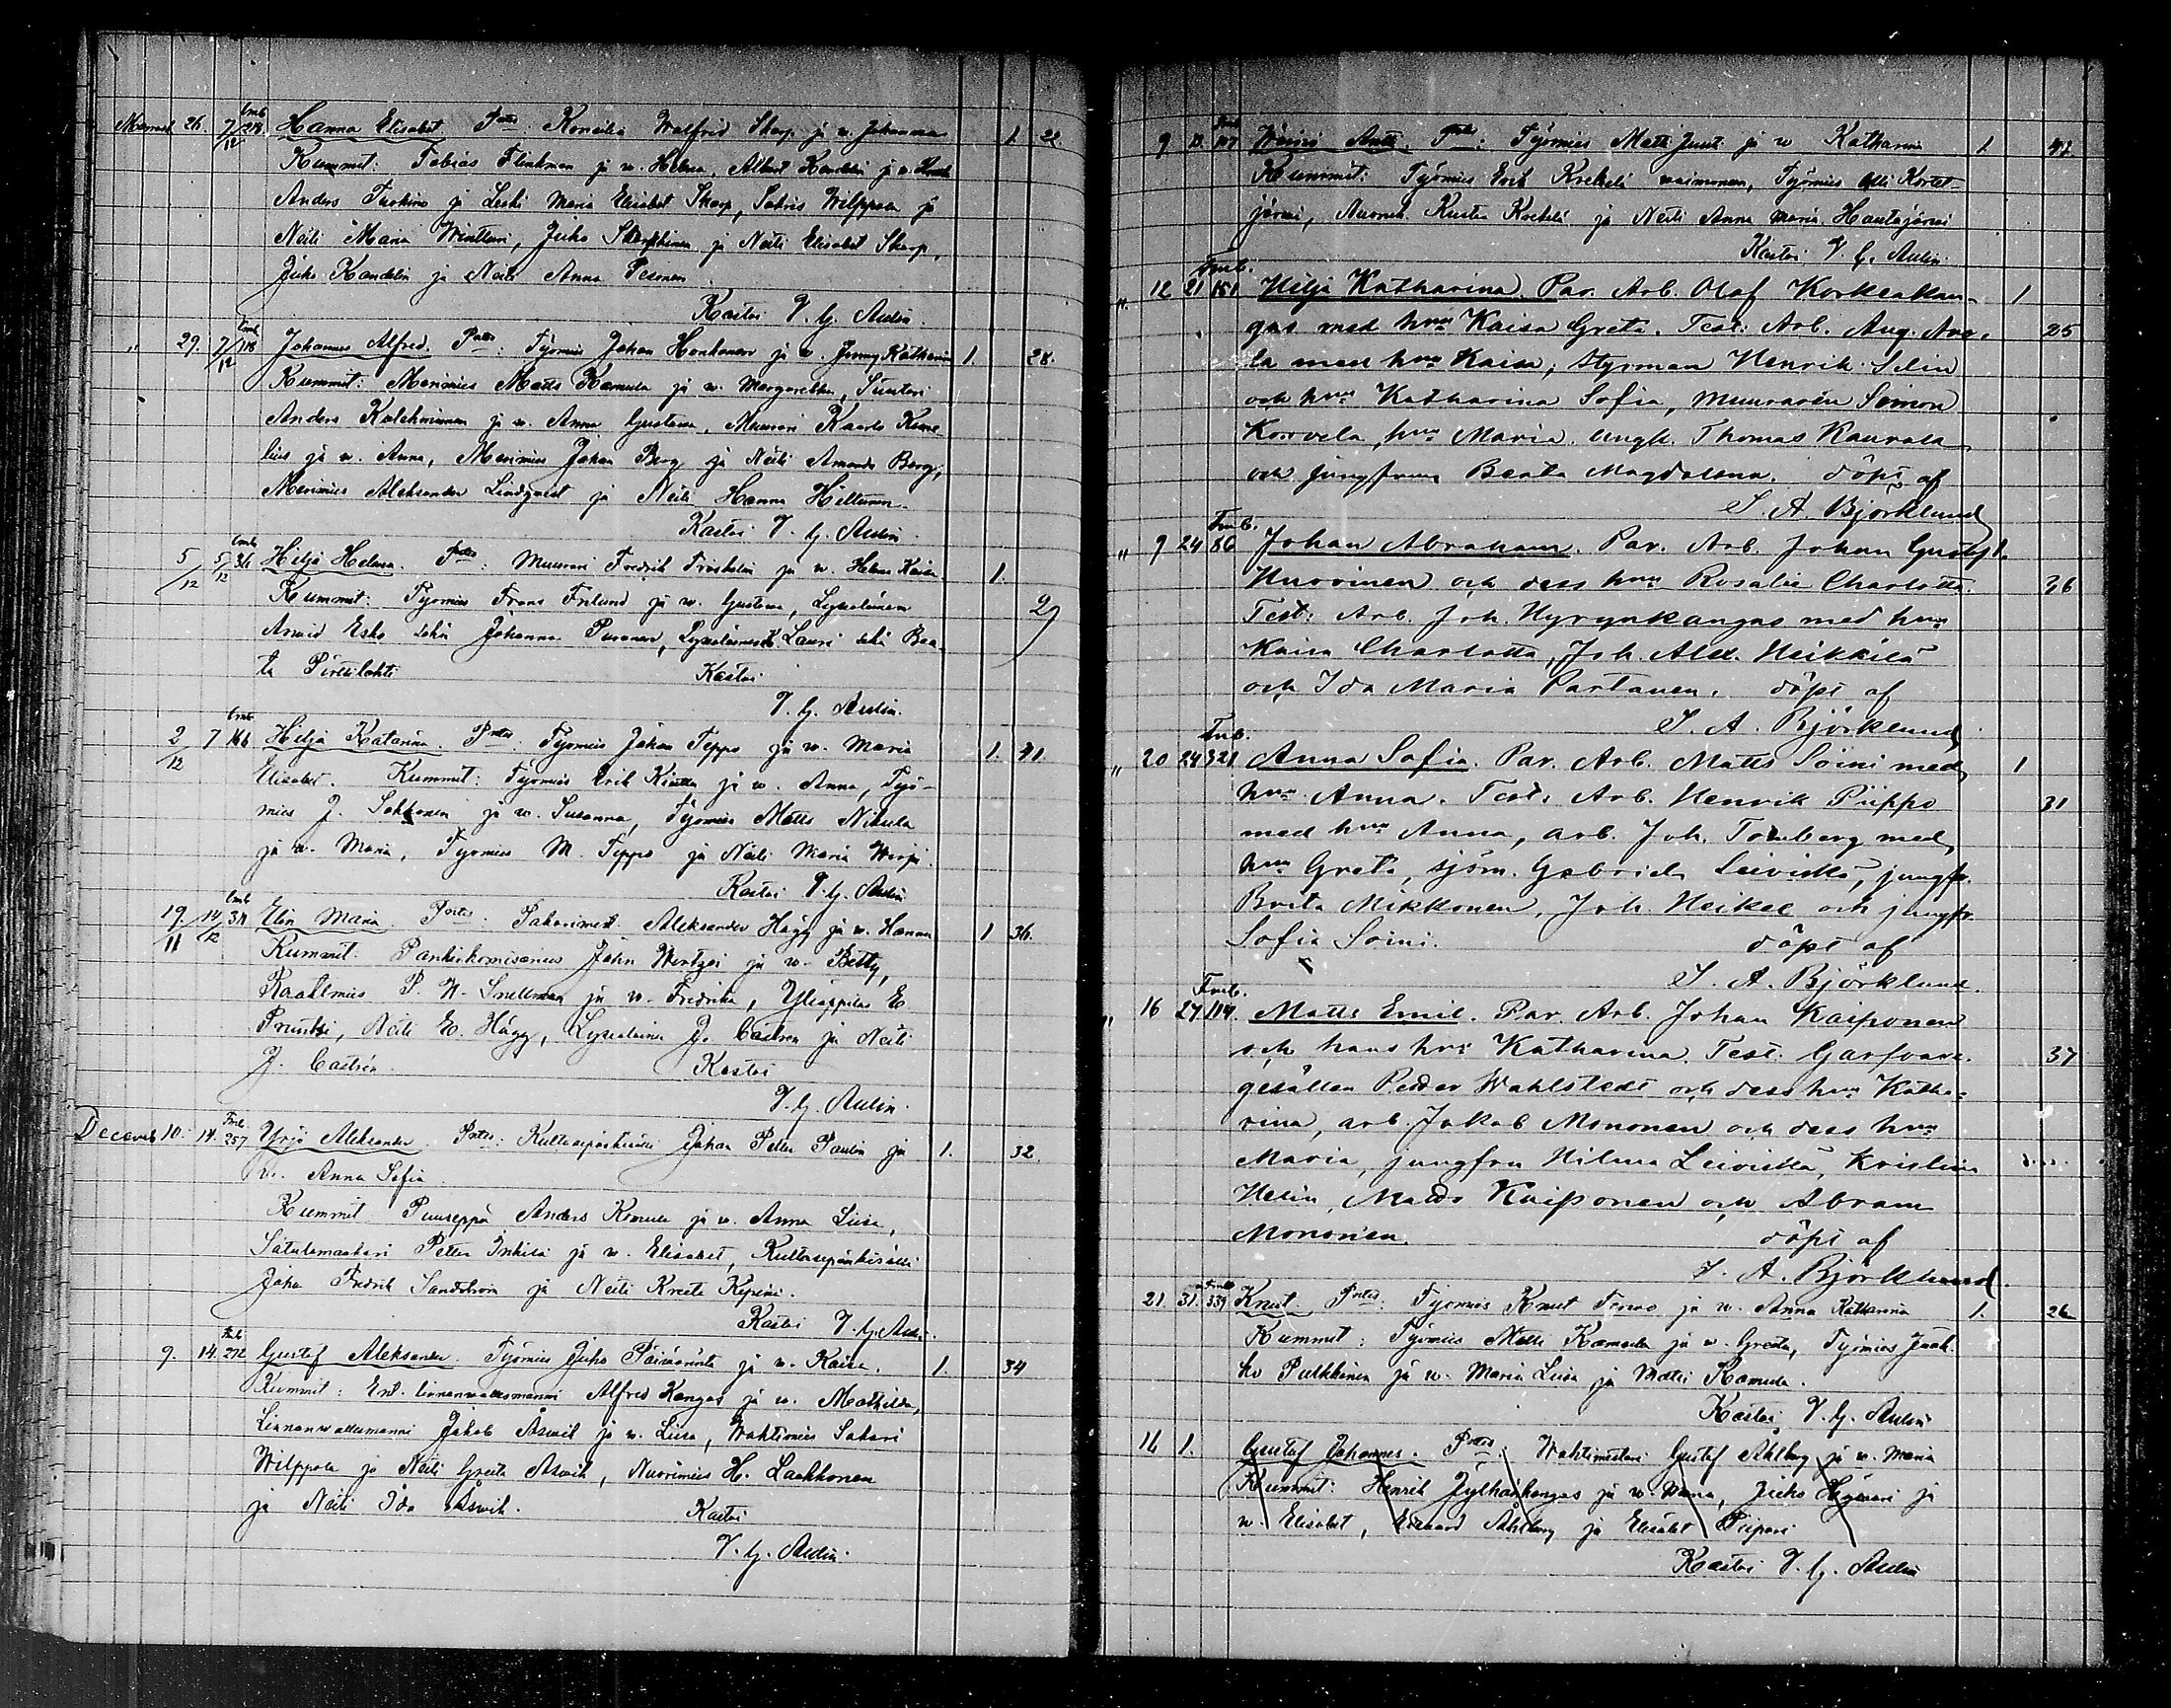 26. 7/12 218 Hanna Elisabet. Walfrid Skarp ja w. Johanna 1. 22.
Kummit: Tobias Flinkman ja w. Helena, Albert Kandelin ja w.
Anders ja Leski Maria Elisabet Skarp, Wilppola ja
Neiti Maria Juho ja Neiti Elisabet Skarp,
Juho Kandelin ja Neiti Anna Pesonen.
Kastoi V. G. Aulin.
" 29. 7/12 118 Johannes Alfred. Työmies Johan Honkanen ja w. Jenny Katharina 1. 28.
Kummit: Merimies Matts Ramula ja w. Margaretha, Suutari
Anders Kolehmainen ja w. Anna Gustava, Muurari Kaarlo
lius ja w. Anna, Merimies Johan Berg ja Neiti Amanda Berg,
Merimies Aleksander Lindqvist ja Neiti Hanna Hiltunen.
Kastoi V. G. Aulin.
5/12 5/12 Hilja Helena. Muurari Fredrik ja w. Helena Kaisa 1.
Kummit: Työmies Frans Frilund ja w. Gustava, Lyseolainen 29
Arvid Esko sekä Johanna Puranen, Lauri sekä Bea-
ta Pirttilahti Kastoi
V. G. Aulin.
2/12 7 166 Hilja Katarina. Työmies Johan Teppo ja w. Maria 1. 41.
Elisabet. Kummit: Työmies Erik ja w. Anna, Työ-
mies J. ja w. Susanna, Työmies Matts Nikula
ja w. Maria, Työmies M. Teppo ja Neiti Maria
Kastoi V. G. Aulin
19/11 14/12 Elin Maria. Aleksander Hägg ja w. Hanna 1 36.
Kummit: John ja w. Betty,
P. W. Snellman ja w. Fredrika, Ylioppilas E.
Neiti E. Hägg, Lyseolainen J. Castrén ja Neiti
J. Castrén. Kastoi
V. G. Aulin.
Decemb 10. 14. 257 Yrjö Aleksander. Kultasepänkisälli Johan Petter Paulin ja 1. 32.
w. Anna Sofia.
Kummit Puuseppä Anders Ramula ja w. Anna Liisa,
Satulamaakari Petter Inkilä ja w. Elisabet, Kultasepänkisälli
Johan Fredrik Sandström ja Neiti Kreeta
Kastoi V. G. Aulin.
9. 14. 272 Gustaf Aleksander. Työmies Juho Päivärinta ja w. Kaisa. 1. 34
Kummit: Ent. linnanwallesmanni Alfred Kangas ja w. Mathilda,
Linnanwallesmanni Jakob ja w. Liisa, Wahtimies Sakari
Wilppola ja Neiti Greta Nuorimies H. Laakkonen
ja Neiti Ida Kastoi
V. G. Aulin.
9 107 Antti. Työmies Matti Juusti ja w Katharina 1. 42
Kummit: Työmies Erik Krekilä waimonen, Työmies Olli Kortet
järwi, Nuorimies Kusta Krekilä ja Neiti Anna Maria Hautajärwi
Kastoi V. G. Aulin
Fmb.
" 12 21 151 Hilja Katharina. Par. Arb. Olof Korkeakan- 1
gas med hru Kaisa Greta. Test: Arb. Aug. Aro- 25
la med hru Kaisa, styrman Henrik Selin
och hru Katharina Sofia, muuraren Simon
Korvela, hru Maria. ungk. Thomas Kaurala
och jungfrun Beata Magdalena. döpt af
S. A. Björklund
Fmb.
" 9 24 86 Johan Abraham. Par. Arb. Johan Gustaf 1.
Hurvinen och dess hru Rosalie Charlotta. 36
Test: Arb. Joh. Hyrynkangas med hru
Kaisa Charlotta, Joh. Alex. Heikkilä
och Ida Maria Partanen. döpt af
S. A. Björklund.
Fmb.
" 20 24 321 Anna Sofia. Par. Arb. Matts Soini med 1
hru Anna. Test. Arb. Henrik Piippo 31
med hru Anna, arb. Joh. Tornberg med
hru Greta, sjöm. Gabriel Leiviskä, jungfr.
Brita Mikkonen, Joh. Heikel och jungfr.
Sofia Soini. döpt af
S. A. Björklund.
Fmb.
" 16 27 114. Matts Emil. Par. Arb. Johan Kaiponen
och hans hru Katharina. Test. Garfvare- 37
gesällen Petter Wahlstedt och dess hru Katha-
rina, arb. Jakob Mononen och dess hru
Maria, jungfru Hilma Leiviskä, Kristiina
Helin, Matts Kaiponen och Abram
Mononen. döpt af
S. A. Björklund.
21. 31. 339 Knut. Työmies Knut ja w. Anna Katharina 1. 26
Kummit: Työmies Matti Ramula ja w. Greta, Työmies Jaak-
ko Pulkkinen ja w. Maria Liisa ja Matti Ramula.
Kastoi V. G. Aulin
16 1. Gustaf Johannes. Wahtimestari Gustaf Åhlberg ja w. Maria
Kummit: Henrik Jylhänkangas ja w. Juho ja
w. Elisabet, Edward Åhlberg ja Elisabet Piipari
Kastoi V. G. Aulin